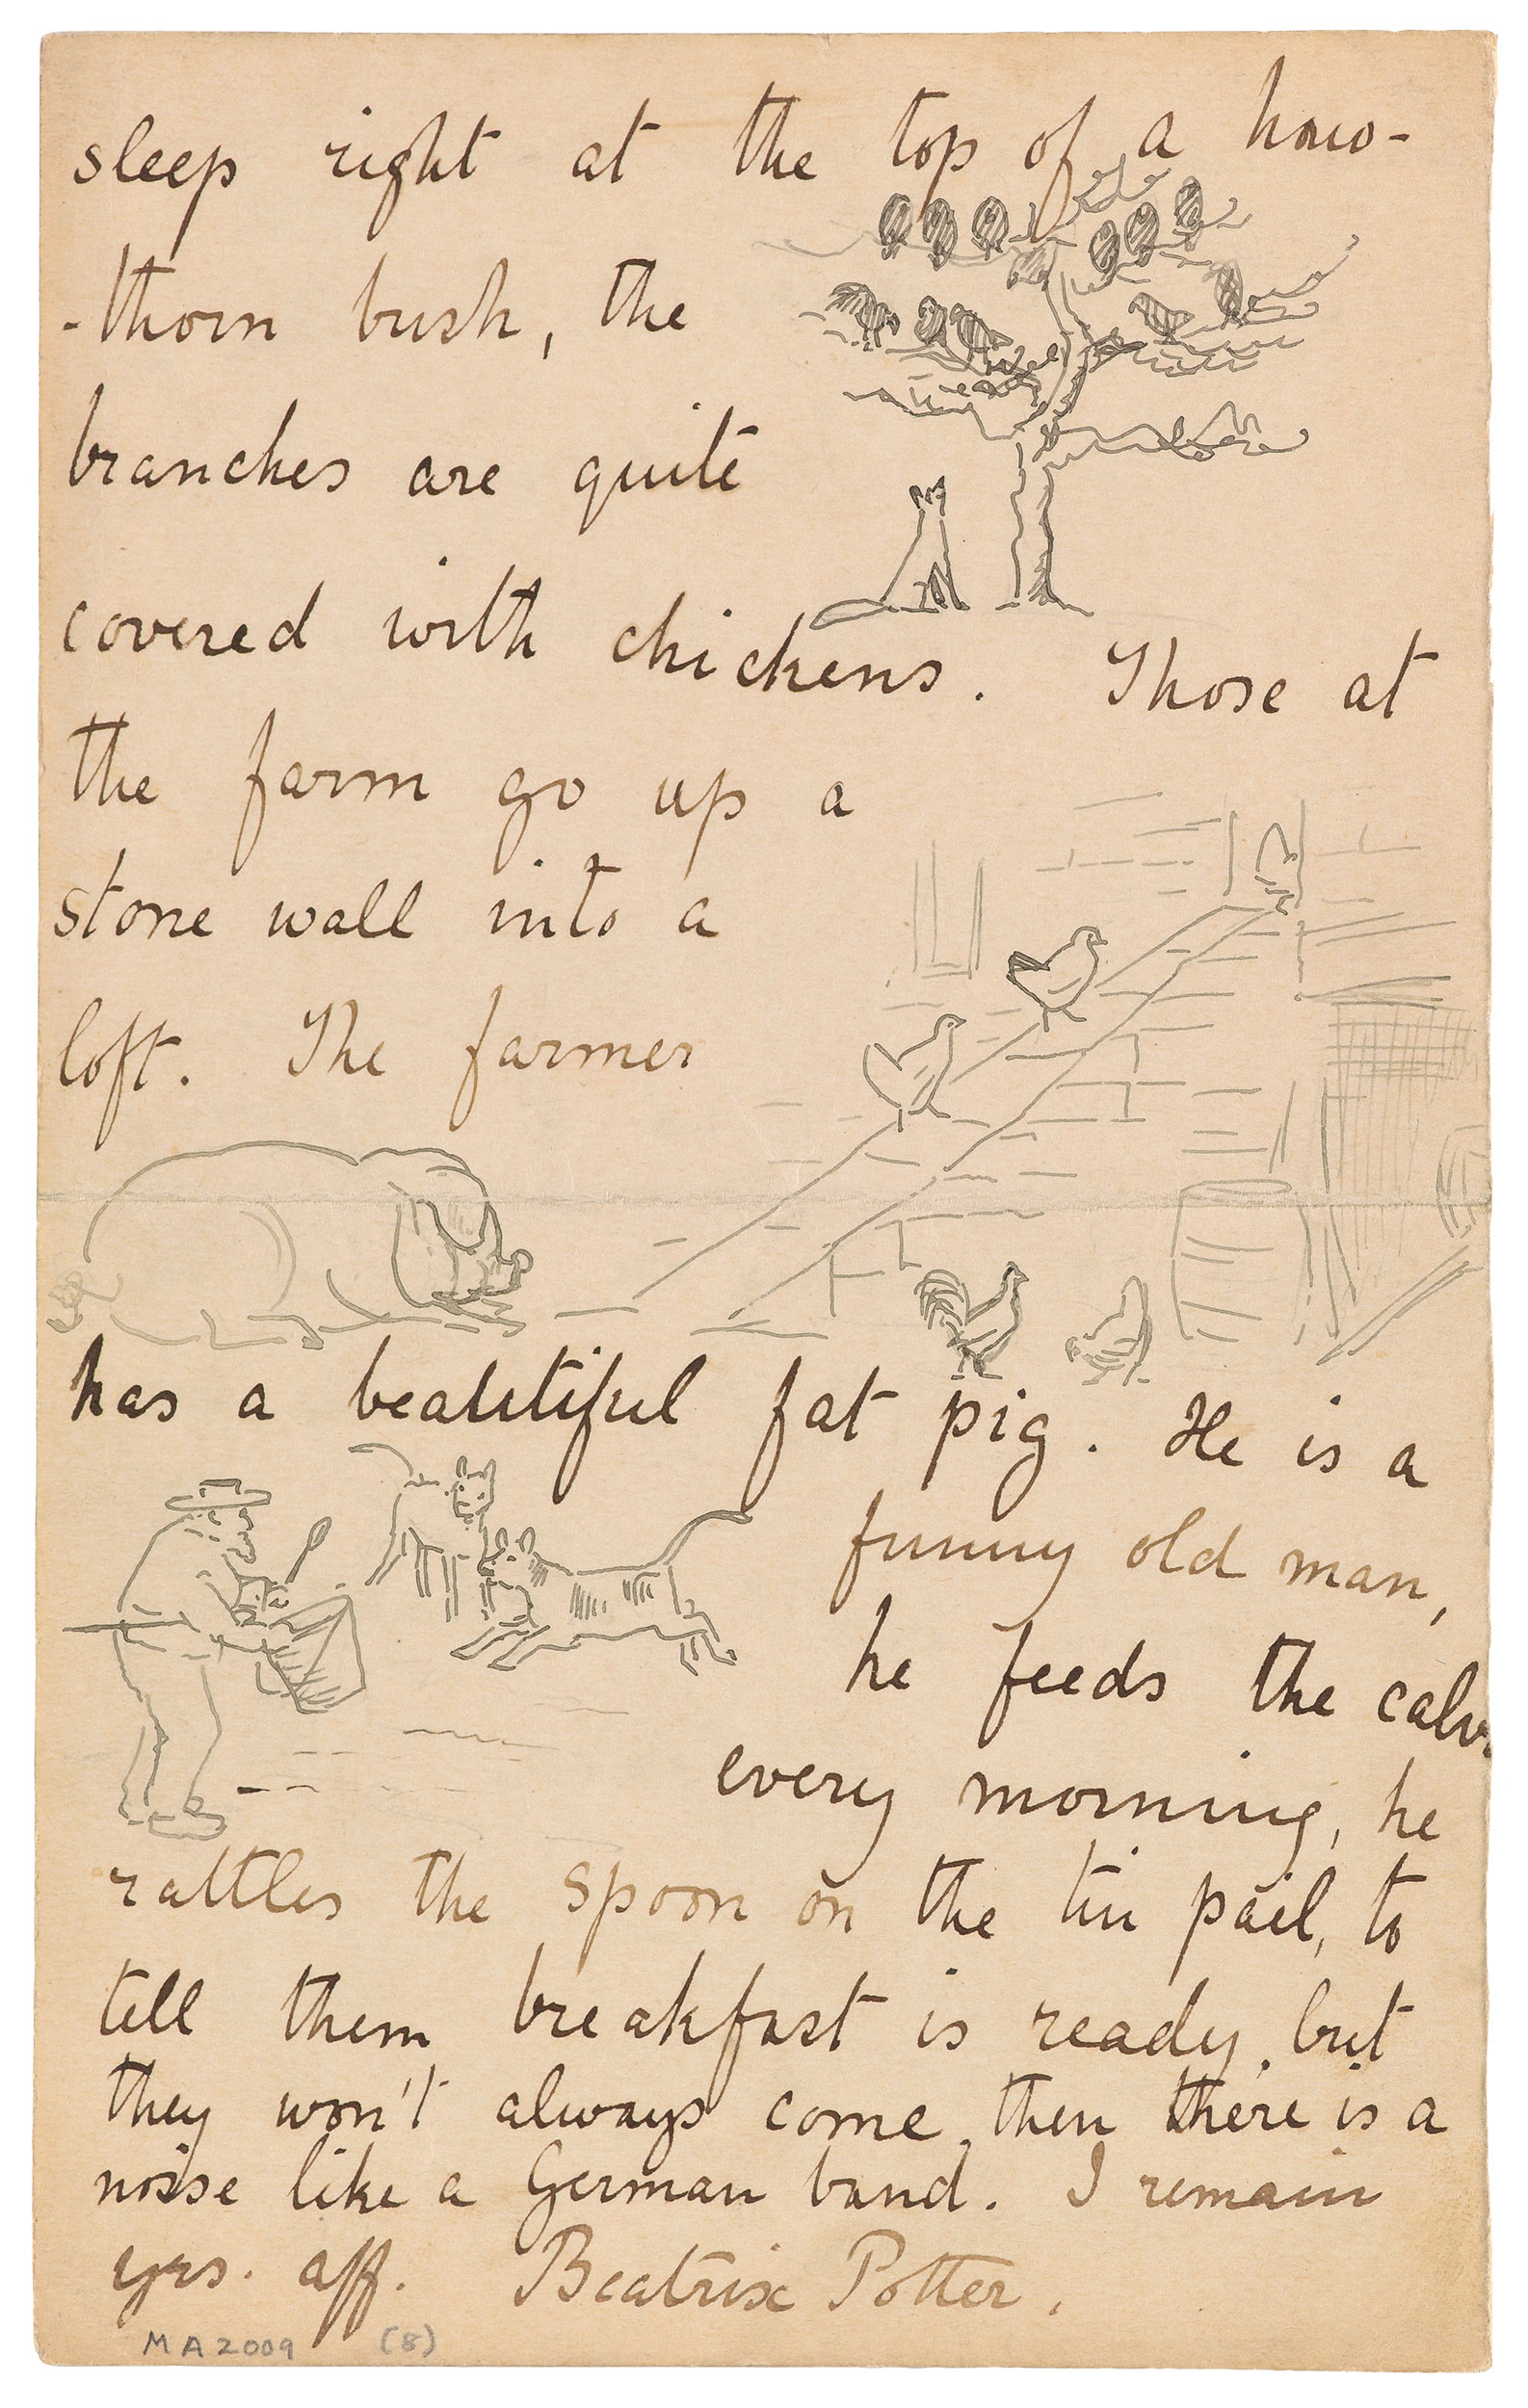 sleep right at the top of a haw-
-thorn bush, the
branches are quite
covered with chickens. Those at
the farm go up a
stone wall into a
loft. The farmer
has a beautiful fat pig. He is a
funny old man,
he feeds the calv
every morning, he
rattles the spoon on the tin pail, to
tell them breakfast is ready, but
they won't always come, then there is a
noise like a German band. I remain
yrs. aff. Beatrix Potter.
MA2009 (8)